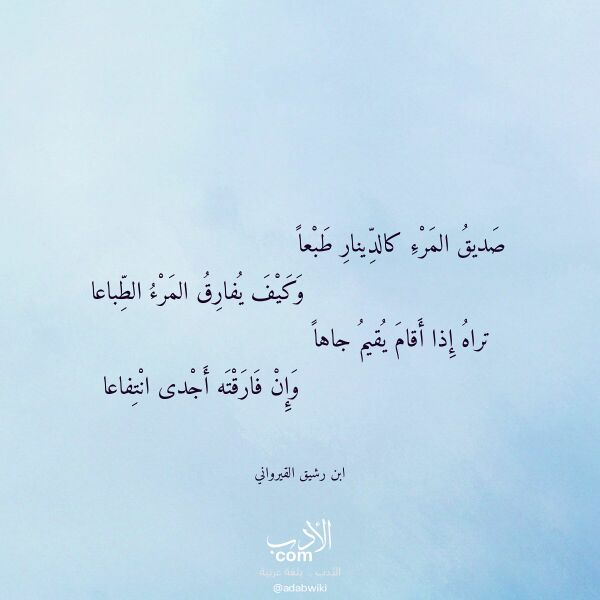 صَديقُ المَرْءِ كالدِّينارِ طَبْعاً
وَكَيْفَ يُفارِقُ المَرْءُ الطِّباعا
تراهُ إِذا أَقامَ يُقيمُ جاهاً
وَإِنْ فَارَقْتَه أَجْدى انْتِفاعا
ابن رشيق القيرواني
الأدب
com
الأدب .. بلغة عربية
@adabwiki